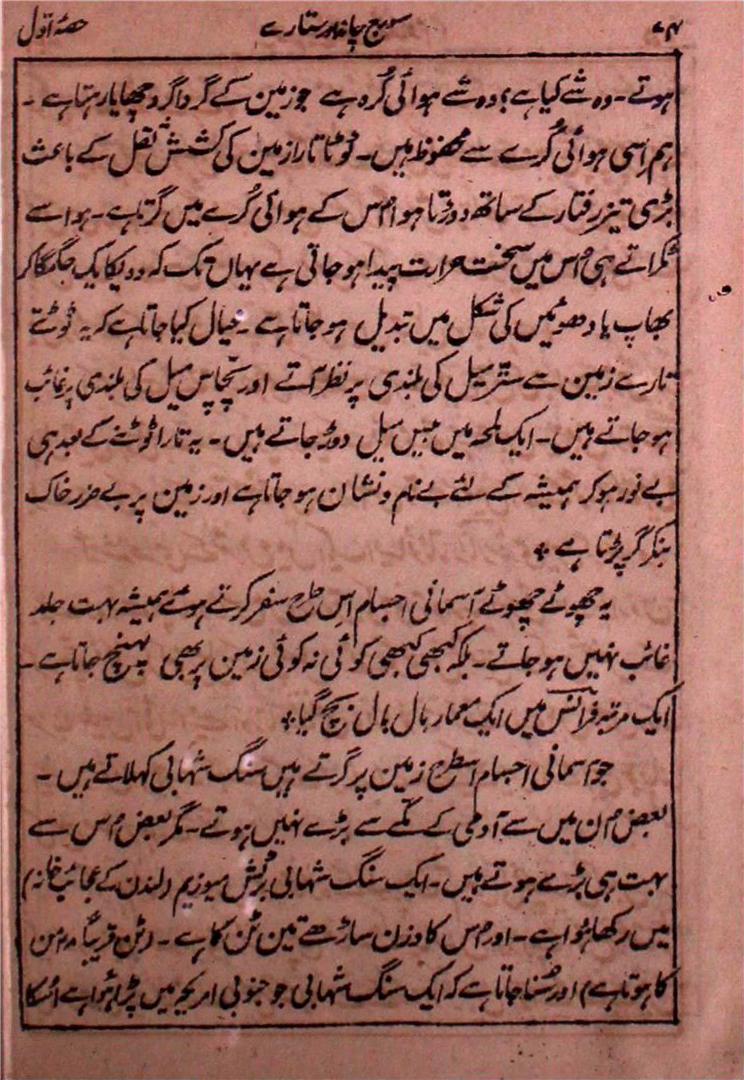 ۷۴ سورج چاند اور ستارے حصۂ اوّل
ہوتے۔ وہ شے کیا ہے؟ وہ شے ہوائی کُرہ ہے جو زمین کے گرداگرد چھایا رہتا ہے۔
ہم اِسی ہوائی کُرے سے محفوظ ہیں۔ ٹوٹا تارا زمین کی کششِ ثقل کے باعث
بڑی تیز رفتار کے ساتھ دوڑتا ہوا اُس کے ہوائی کُرے میں گرتا ہے۔ ہوا سے
ٹکراتے ہی اُس میں سخت حرارت پیدا ہو جاتی ہے یہاں تک کہ وہ یکایک جگمگا کر
بھاپ یا دھوئیں کی شکل میں تبدیل ہو جاتا ہے۔ خیال کیا جاتا ہے کہ یہ ٹوٹتے
تارے زمین سے ستّر میل کی بلندی پر نظر آتے اور پچاس میل کی بلندی پر غائب
ہو جاتے ہیں۔ ایک لمحہ میں بیس میل دوڑ جاتے ہیں۔ یہ تارا ٹوٹنے کے بعد ہی
بے نور ہو کر ہمیشہ کے لئے بے نام و نشان ہو جاتا ہے اور زمین پر بے ضرر خاک
بنکر گر پڑتا ہے +
یہ چھوٹے چھوٹے آسمانی اجسام اِس طرح سفر کرتے ہوئے ہمیشہ بہت جلد
غائب نہیں ہو جاتے۔ بلکہ کبھی کبھی کوئی نہ کوئی زمین پر بھی پہنچ جاتا ہے۔
ایک مرتبہ فرانس میں ایک معمار بال بال بچ گیا +
جو آسمانی اجسام اسطرح زمین پر گرتے ہیں سنگ شہابی کہلاتے ہیں۔
بعض اُن میں سے آدمی کے مُکّے سے بڑے نہیں ہوتے۔ مگر بعض اُس سے
بہت ہی بڑے ہوتے ہیں۔ ایک سنگ شہابی برٹش میوزیم (لندن کے عجائب خانہ)
میں رکھا ہُوا ہے۔ اور اُس کا وزن ساڑھے تین ٹن کا ہے۔ (ٹن قریباً من
کا ہوتا ہے) اور سُنا جاتا ہے کہ ایک سنگ شہابی جو جنوبی امریکہ میں پڑا ہُوا ہے اُسکا